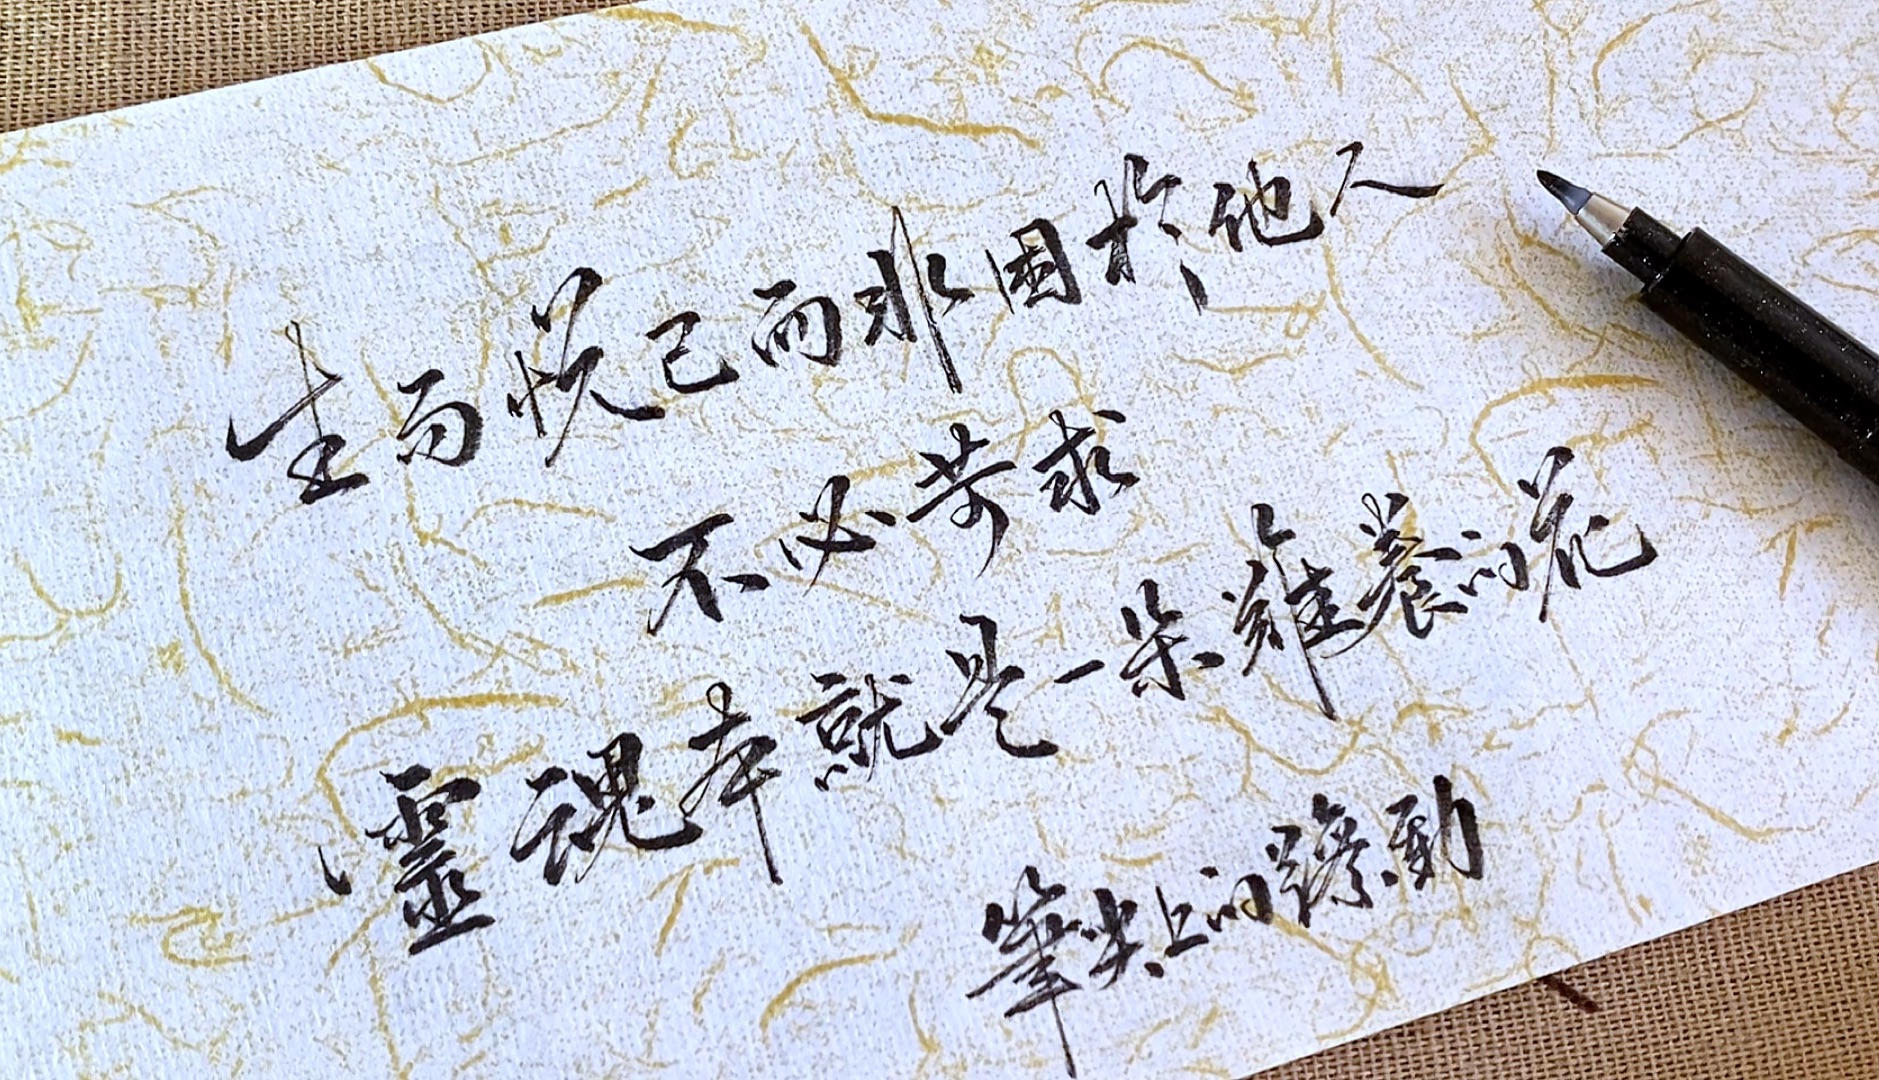 生而悦己而非困於他人
不必苛求
靈魂本就是一朵難養的花
筆尖上的躁動